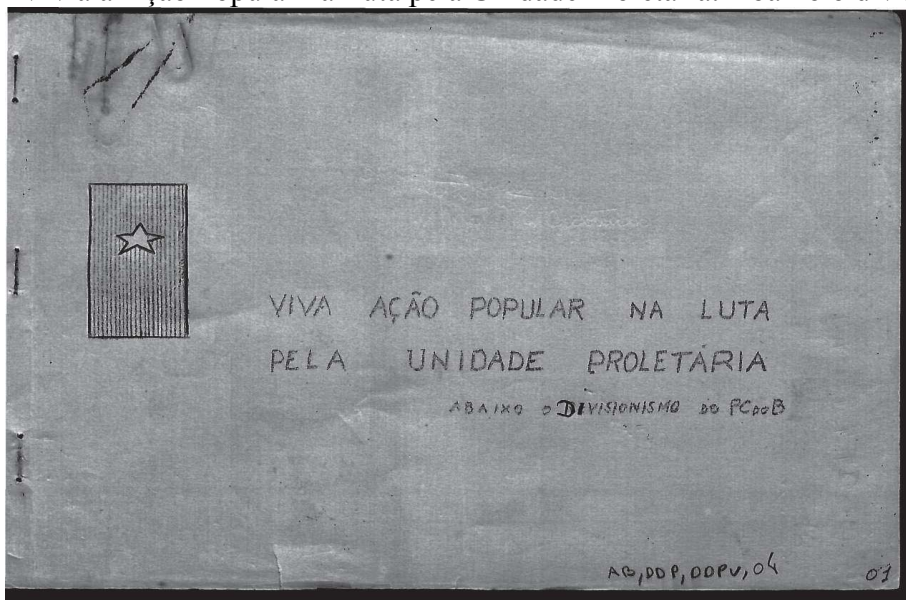 VIVA AÇÃO POPULAR NA LUTA
PELA UNIDADE PROLETÁRIA
ABAIXO O DIVISIONISMO DO PCdoB
AB,DDP,DDPV,04
01